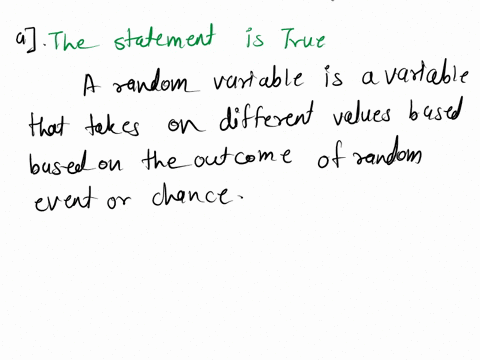 a]. The statement is True
A random variable is a variable
that takes on different values based
based on the outcome of random
event or chance.